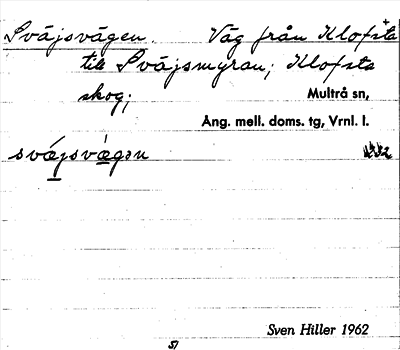 Sväjsvägen. Väg från Klofsta
till Sväjsmyran; Klofsta
skog; Multrå sn,
Ång. mell. doms. tg, Vrnl. l.
svæ̀jsvæ̀gən
Sven Hiller 1962
57